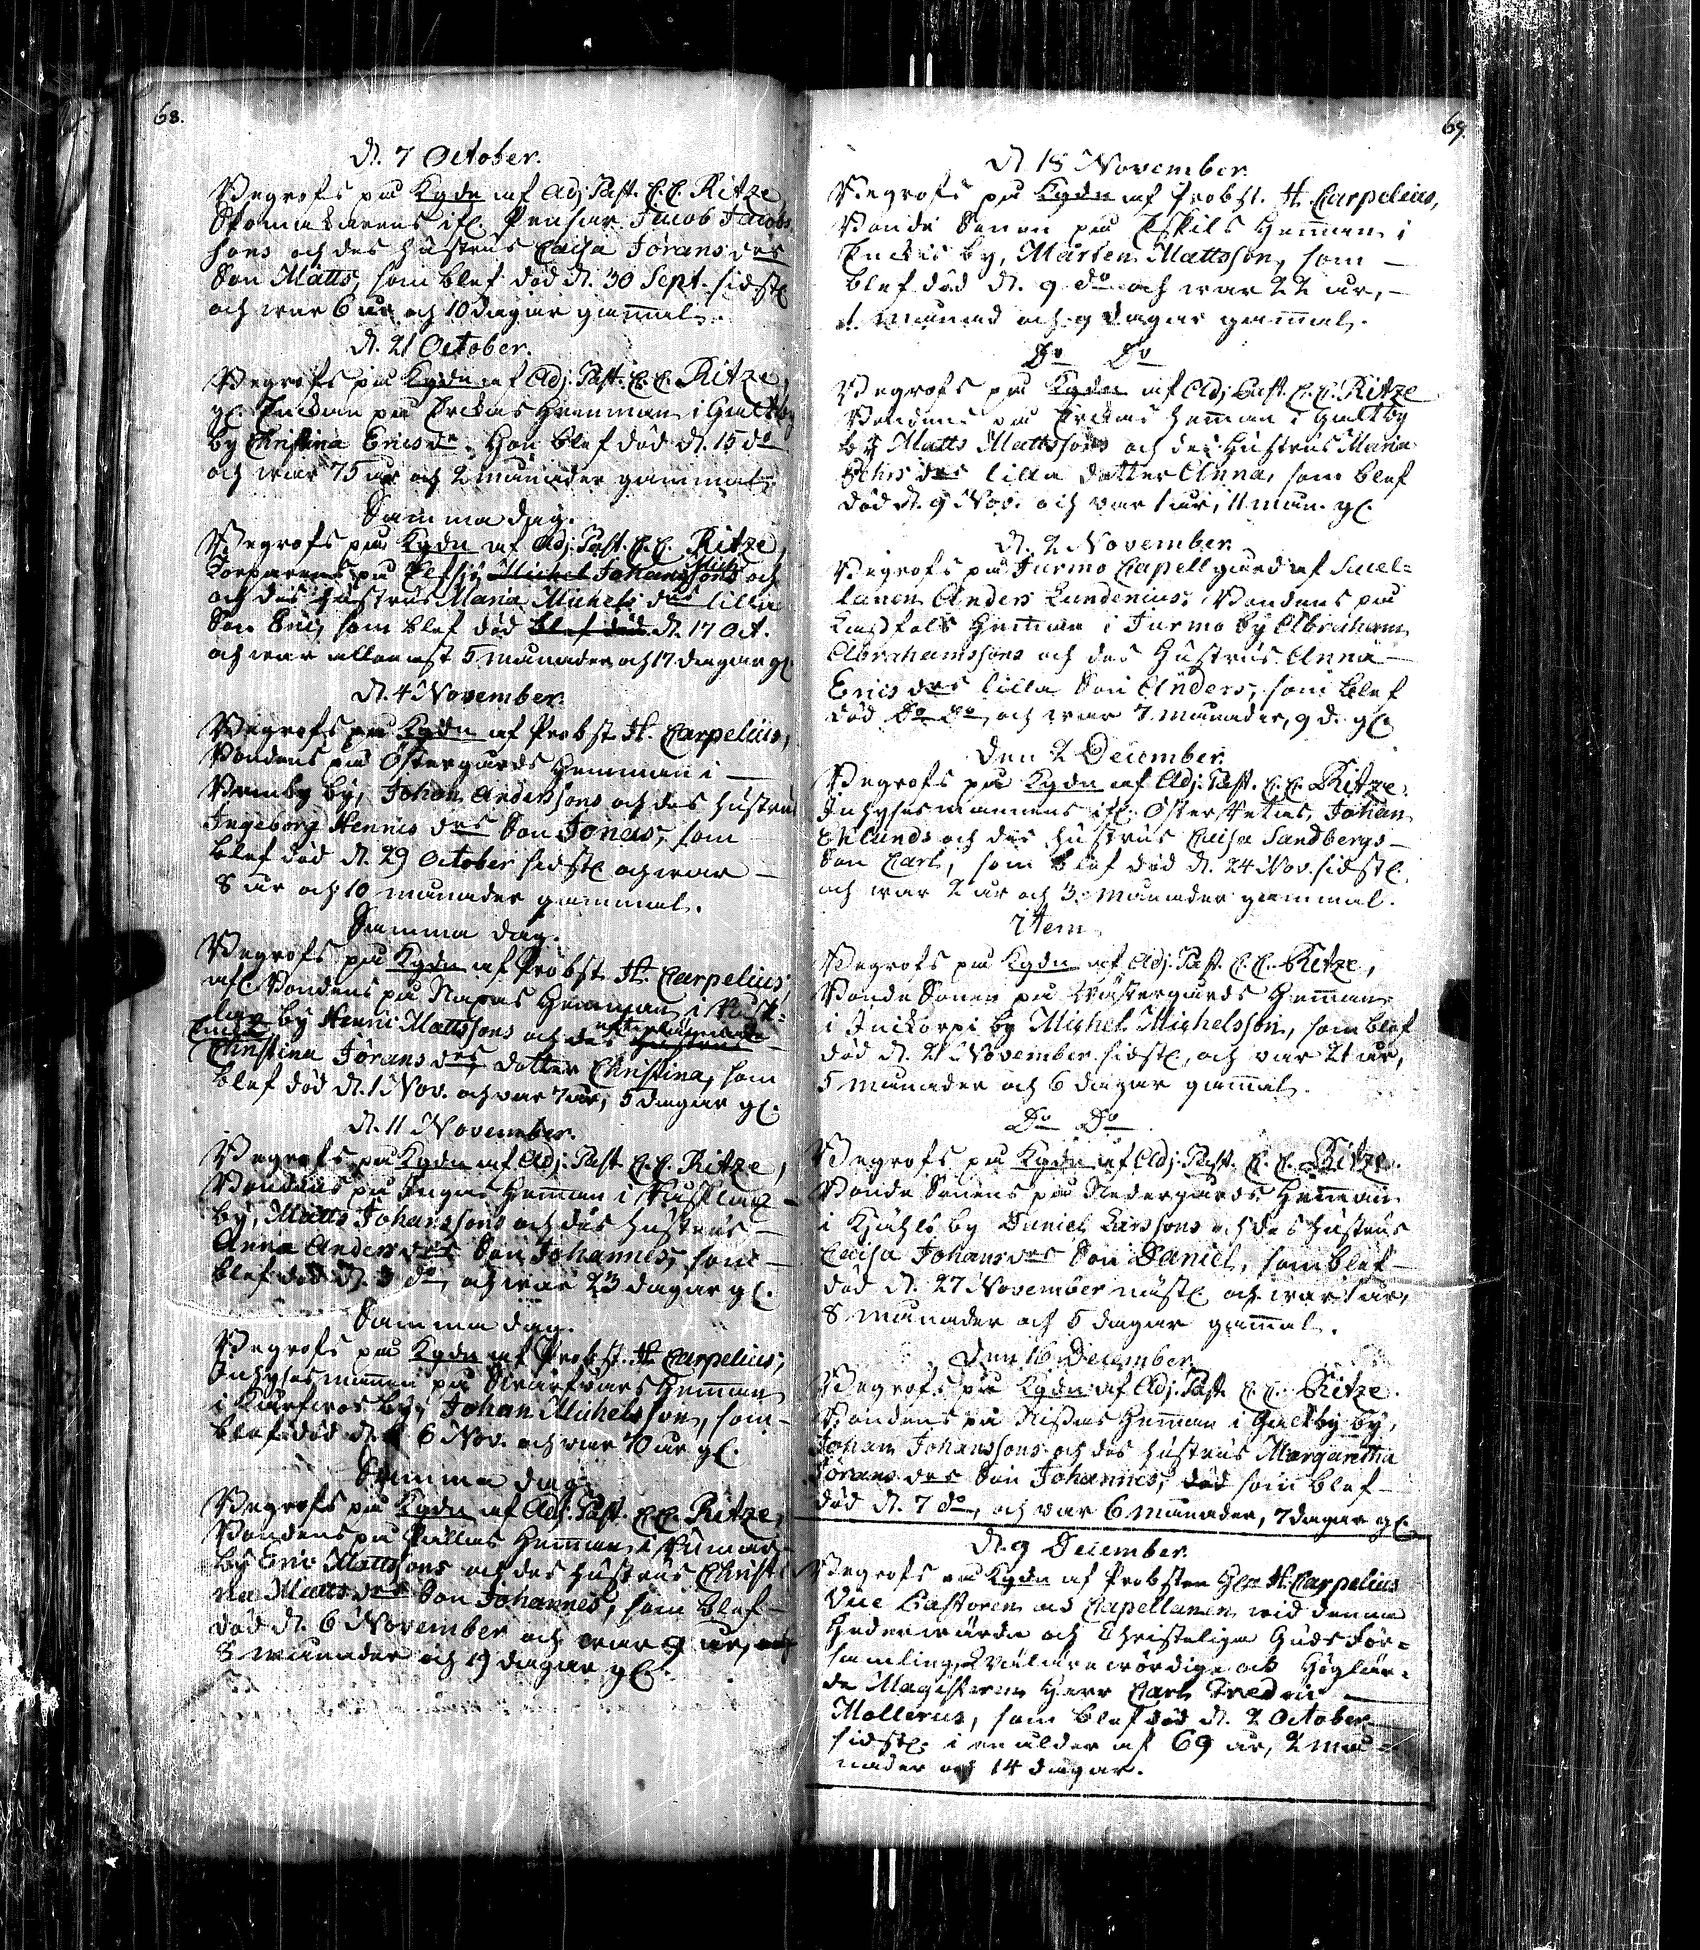 68.
D. 7 October.
Begrofs på Kgdn af Adj. Past. C. C. Ritze,
Skomakarens ifr. Jacob Jacobs
sons och des hustrus Caisa Jörans drs
Son Matts, som blef död d. 30 Sept. sidstl.
och war 6 år och 10 dagar gammal.
D. 21 October.
Begrofs på Kgdn af Adj. Past. C. C. Ritze,
gl. Enckan på Erckas Hemman i Galtby
by Christina Ericsdr. Hon blef död d. 15 do
och war 75 år och 2 månader gammal.
Samma dag.
Begrofs på Kgdn af Adj. Past. C. C. Ritze,
Torparens på Johanssons och
och des hustrus Maria Michels drs lilla
Son Eric, som blef död blef död d. 17 Oct.
och war allenast 5 månader och 17 dagar gl.
D. 4 November.
Begrofs på Kgdn af Probst H. Carpelius,
Bondens på Östergårds Hemman i
by, Johan Anderssons och des hustrus
Ingeborg Henrics drs Son Jonas, som
blef död d. 29 October sidstl. och war
8 år och 10 månader gammal.
Samma dag.
Begrofs på Kgdn af Probst H. Carpelius,
afl. Bondens på Hemman i
by Henric Mattssons och des efterlämnade hustrus
Enckas Christina Jörans drs dotter Christina, som
blef död d. 1 Nov. och var 7 år, 5 dagar gl.
D. 11 November.
Begrofs på Kgdn af Adj. Past. C. C. Ritze,
Bondens på Hemman i
by, Matts Johanssons och des hustrus
Anna Anders drs Son Johannes, som
blef död d. 3 do, och war 23 dagar gl.
Samma dag.
Begrofs på Kgdn af Probst. H. Carpelius,
Inhysesmannen på Hemman
i by, Johan Michelsson, som
blef död d. 6 Nov. och war 70 år gl.
Samma dag
Begrofs på Kgdn af Adj. Past. C. C. Ritze,
Bondens på Hemman i
by Eric Mattssons och des hustrus Christi
na Matts drs Son Johannes, som blef
död d. 6 November och war 9 år,
8 månader och 19 dagar gl.
69.
D. 18 November.
Begrofs på Kgdn af Probst. H. Carpelius,
Bonde Sonen på Eskils Hemman i
by, Mårten Mattsson, som
blef död d. 9 do och war 22 år,
1 månad och 9 dagar gammal.
Do Do
Begrofs på Kgdn af Adj. Past. C. C. Ritze
Bondens på Erckas Hemman i Galtby
by Matts Mattssons och des Hustrus Maria
drs lilla dotter Anna, som blef
död d. 9 Nov. och var 1 år, 11 mån. gl.
D. 2 November.
Begrofs på Jurmo Capell gård af Cacel-
lanen Anders Lundenius, Bondens på
Hemman i Jurmo by Abraham
Abrahamssons och des Hustrus Anna
Erics drs lilla Son Anders, som blef
död Do Do, och war 7 månader, 9 d. gl.
Den 2 December.
Begrofs på Kgdn af Adj. Past. C. C. Ritze,
Inhysesmannens ifr. Johan
Eklunds och des hustrus Caisa Sandbergs
Son Carl, som blef död d. 24 Nov. sidstl.
och war 2 år och 3 månader gammal.
Item
Begrofs på Kgdn af Adj. Past. C. C. Ritze,
Bonde Sonen på Wästergårds Hemman
i by Michel Michelsson, som blef
död d. 21 November sidstl, och var 21 år,
5 månader och 6 dagar gammal.
Do Do
Begrofs på Kgdn af Adj. Past. C. C. Ritze.
Bonde Sonens på Nedergårds Hemman
i by Daniel Larssons och des hustrus
Caisa Johans drs Son Daniel, som blef
död d. 27 November nästl. och war 1 år,
8 månader och 5 dagar gammal.
Den 16 December
Begrofs på Kgdn af Adj. Past. C. C. Ritze.
Bondens på Nissas Hemman i Galtby by,
Johan Johanssons och des hustrus Margaretha
Jörans drs Son Johannes, död som blef
död d. 7 do, och var 6 månader, 7 dagar gl.
D. 9 December.
Begrofs på Kgdn af Probsten Hr H. Carpelius
Vice Pastoren och Capellanen wid denna
Hederwärda och Christeliga Guds För-
samling, Wälärewördige och Höglär-
de Magistern Herr Carl Fredric
Mollerus, som blef död d. 2 October
sidstl. i en ålder af 69 år, 2 må-
nader och 14 dagar.